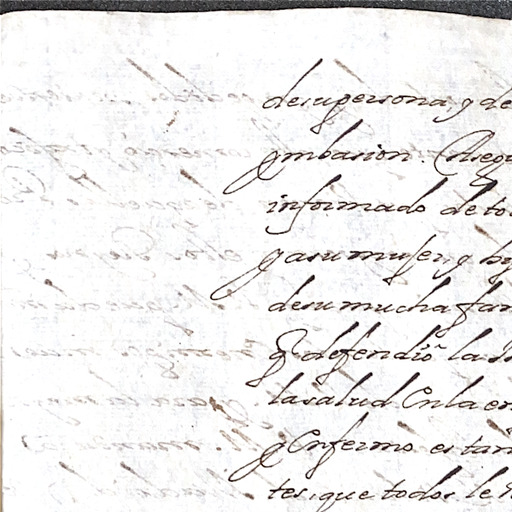 de su persona, y de
ymbasion. Aseg
informado de to
y a su muger, y hij
de su mucha fam
q̃ defendiõ la Is
la salud En la en
y Enfermo estan
tes, que todos le